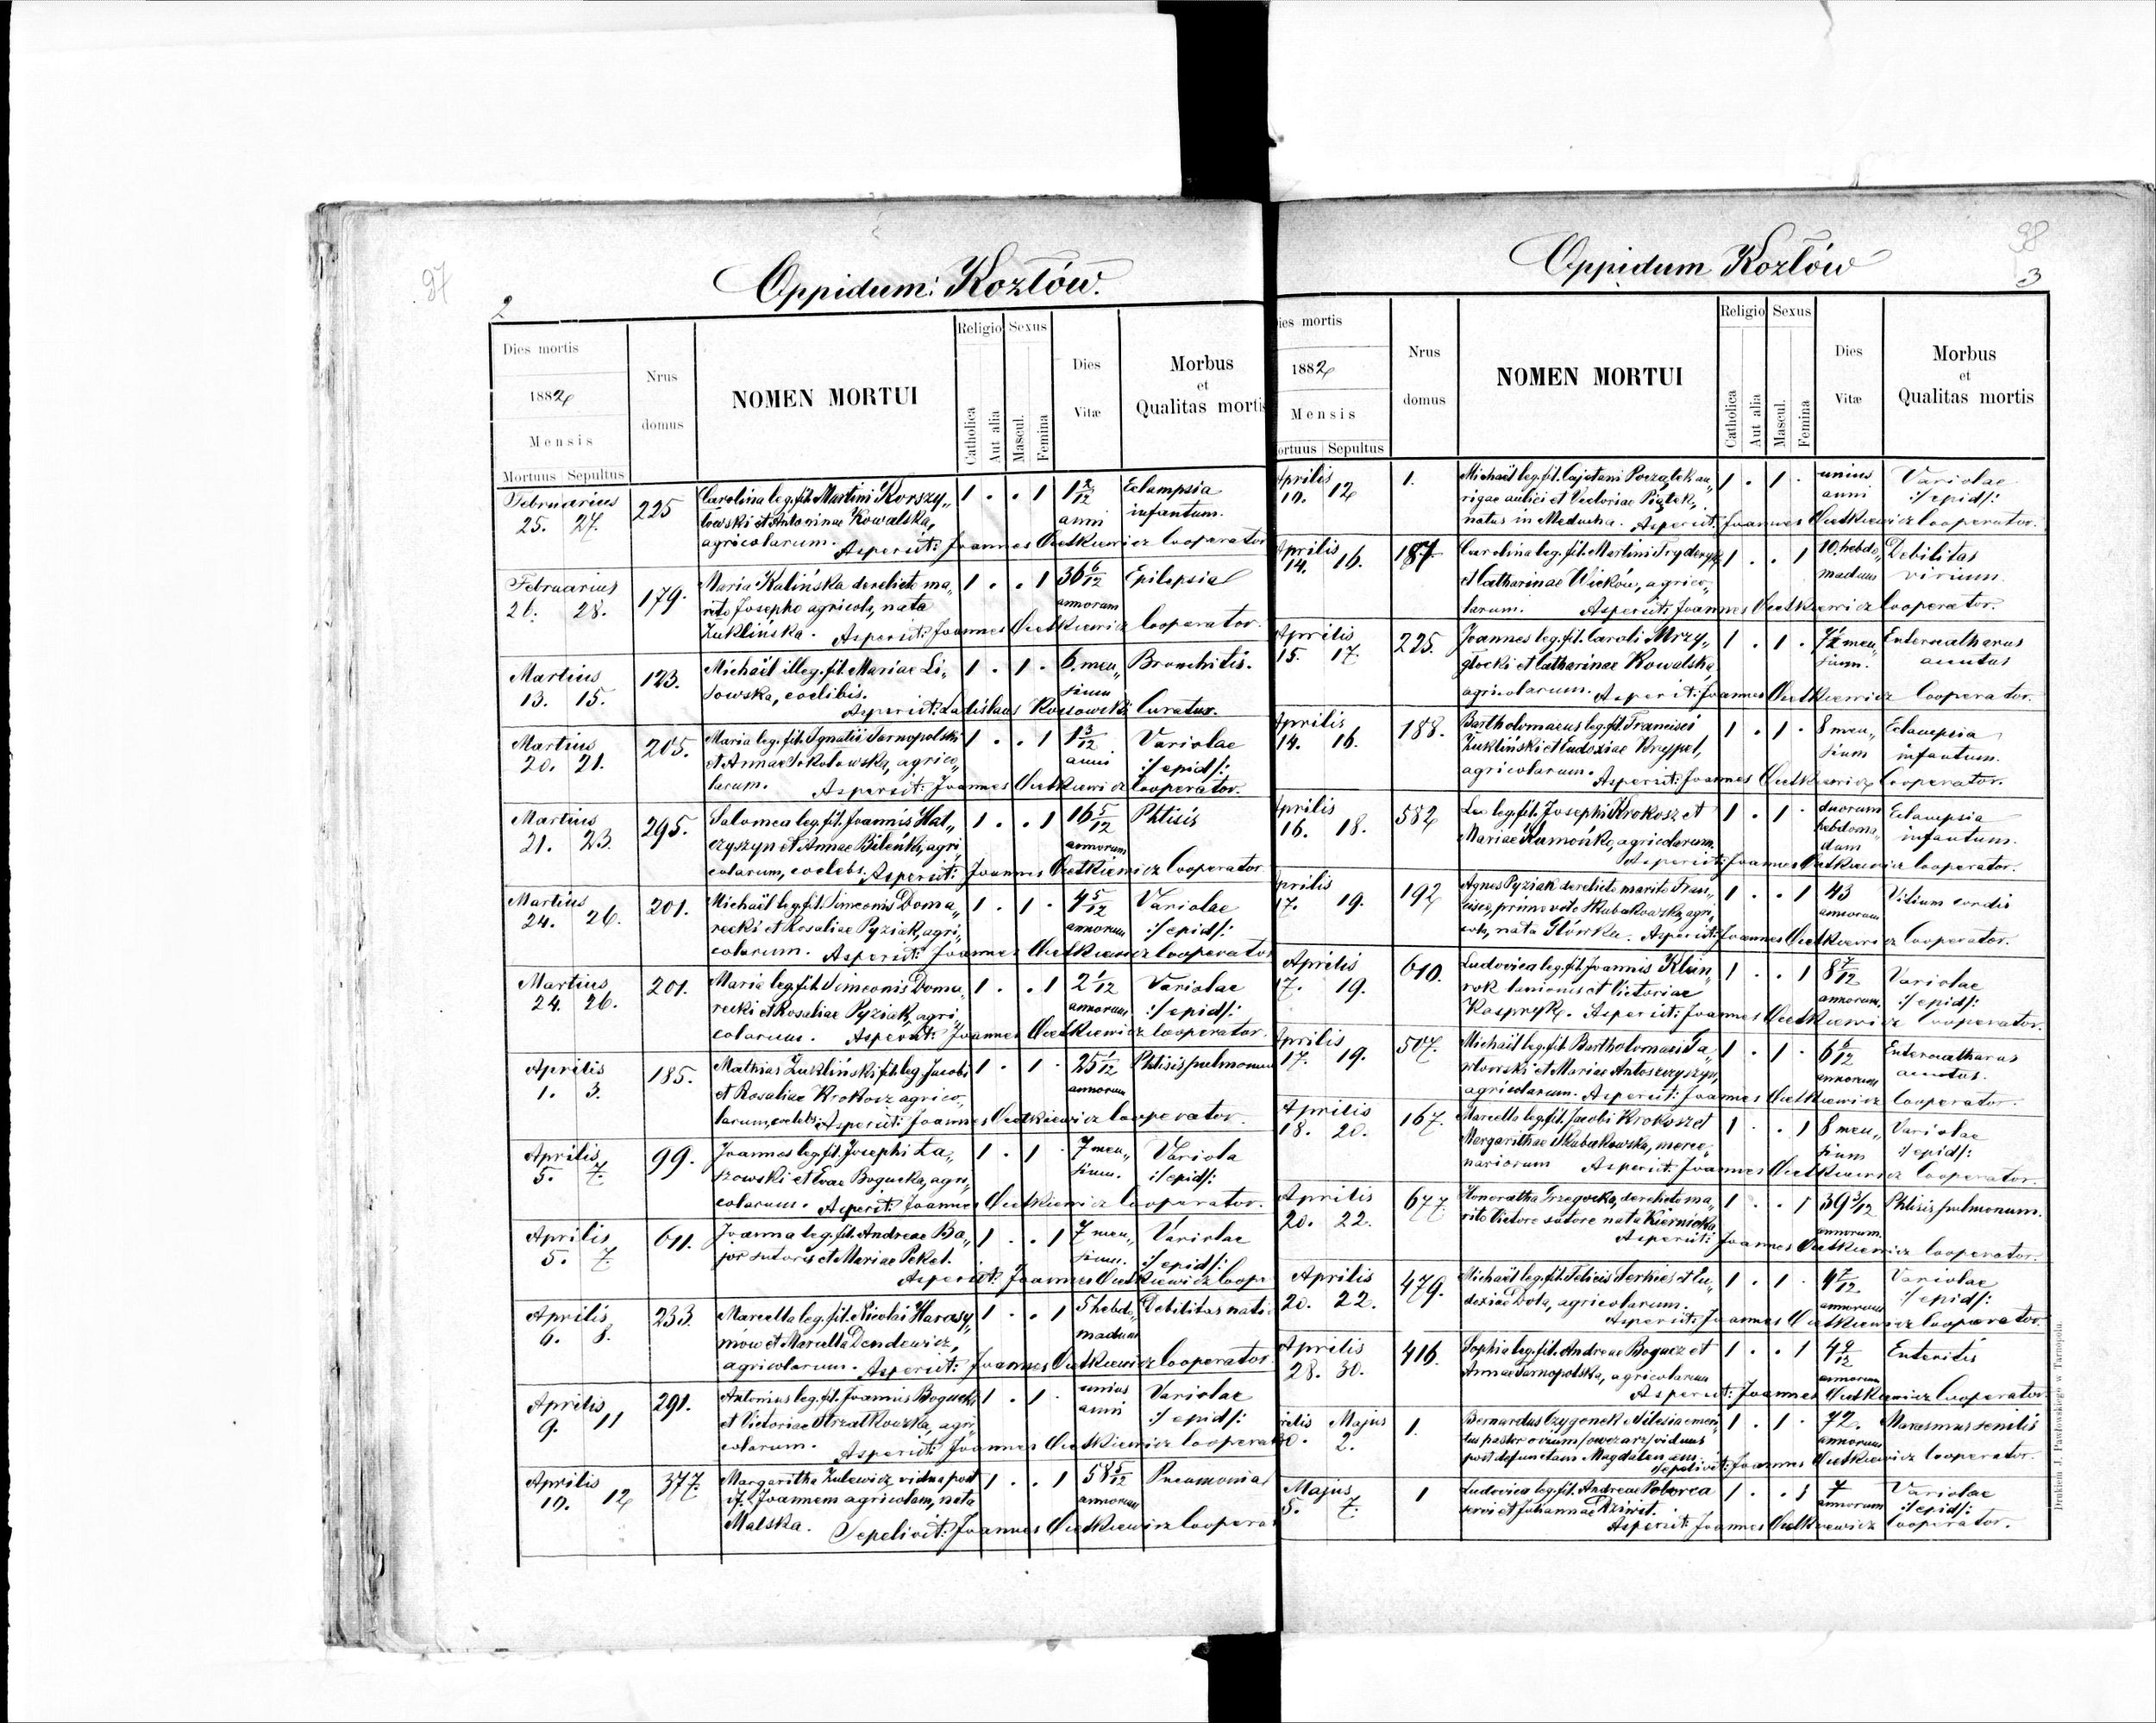 97
2
Oppidum: Kozłów.
Dies mortis
1882
Mensis
Mortuus Sepultus
Nrus
domus
NOMEN MORTUI
Religio Sexus
Catholica
Aut alia
Mascul.
Femina
Dies
Vitæ
Morbus
et
Qualitas mortis
Februarius
25. 27.
225
Carolina leg. fil. Martini Korszy„
łowski et Antoninae Kowalska,
agricolarum. Aspersit: Joannes Cooperator
1 . . 1
1 2/12
anni
Eclampsia
infantum.
Februarius
26. 28.
179.
Maria Kalińska derelicta ma„
rito Josepho agricola, nata
Zuklińska. Aspersit: Joannes Cooperator.
1 . . 1
36 6/12
annorum
Epilepsia
Martius
13. 15.
123.
Michaël illeg. fil. Mariae Li„
sowska, coelibis.
Aspersit: Ladislaus Kossowski Curatus.
1 . 1 .
6. men„
sium
Bronchitis.
Martius
20. 21.
205.
Maria leg. fil. Ignatii Tarnopolski
et Annae Sokołowska, agrico„
larum. Aspersit: Joannes Cooperator.
1 . . 1
1 3/12
anni
Variolae
:/ epid/:
Martius
21. 23.
295.
Salomea leg. fil. Joannis Hał„
czyszyn et Annae Bileńki, agri„
colarum, coelebs. Aspersit: Joannes Cooperator
1 . . 1
16 5/12
annorum
Phtisis
Martius
24. 26.
201.
Michaël leg. fil. Simeonis Doma„
recki et Rosaliae Pyziak, agri„
colarum. Aspersit: Joannes Cooperator
1 . 1 .
4 5/12
annorum
Variolae
:/ epid/:
Martius
24. 26.
201.
Maria leg. fil. Simeonis Doma„
recki et Rosaliae Pyziak, agri„
colarum. Aspersit: Joannes Cooperator.
1 . . 1
2 1/12
annorum
Variolae
:/ epid/:
Aprilis
1. 3.
185.
Mathias Zukliński fil. leg. Jacobi
et Rosaliae Krokosz agrico„
larum, coelebs. Aspersit: Joannes Cooperator.
1 . 1 .
25 1/12
annorum
Phtisis pulmonum
Aprilis
5. 7.
99.
Joannes leg. fil. Josephi Ła„
szowski et Evae Bogucka, agri„
colarum. Aspersit: Joannes Cooperator.
1 . 1 .
7 men„
sium.
Variola
:/ epid/:
Aprilis
5. 7.
611.
Joanna leg. fil. Andreae Ba„
jor sutoris et Mariae Pekel.
Aspersit: Joannes Coope
1 . . 1
7 men„
sium.
Variolae
:/ epid/:
Aprilis
6. 8.
233.
Marcella leg. fil. Nicolai Harasy„
mow et Marcella Dendewicz,
agricolarum. Aspersit: Joannes Cooperator.
1 . . 1
5 hebdo„
madum
Debilitas nati
Aprilis
9. 11
291.
Antonius leg. fil. Joannis Bogucki
et Victoriae Strzałkowska, agri„
colarum. Aspersit: Joannes Coopera
1 . 1 .
unius
anni
Variolae
:/ epid/:
Aprilis
10. 12
377.
Margaritha Zulewicz vidua post
Joannem agricolam, nata
Malska. Sepelivit: Joannes Coopera
1 . . 1
58 5/12
annorum
Pneumonia
98
3
Oppidum Kozłów
ies mortis
1882
Mensis
ortuus Sepultus
Nrus
domus
NOMEN MORTUI
Religio Sexus
Catholica
Aut alia
Mascul.
Femina
Dies
Vitæ
Morbus
et
Qualitas mortis
Aprilis
10. 12
1.
Michaël leg. fil. Cajetani Początek au„
rigae aulici et Victoriae Piątek,
natus in Meducha. Aspersit: Joannes Cooperator.
1 . 1 .
unius
anni
Variolae
:/ epid/:
Aprilis
14. 16.
187
Carolina leg. fil. Martini Fryderyk
et Catharinae Wicków, agrico„
larum. Aspersit: Joannes Cooperator.
1 . . 1
10. hebdo„
madum
Debilitas
virium.
Aprilis
15. 17.
225.
Joannes leg. fil. Caroli Mrzy„
głocki et Catharinae Kowalska,
agricolarum. Aspersit: Joannes Cooperator.
1 . 1 .
7 1/2 men„
sium.
Enterocatharus
acutus
Aprilis
14. 16.
188.
Bartholomaeus leg. fil. Francisci
Zukliński et Eudoxiae Krypel,
agricolarum. Aspersit: Joannes Cooperator.
1 . 1 .
8 men„
sium
Eclampsia
infantum.
Aprilis
16. 18.
582
Leo leg. fil. Josephi Krokosz et
Mariae Ramońka, agricolarum.
Aspersit: Joannes Cooperator.
1 . 1 .
duorum
hebdoma„
dum
Eclampsia
infantum.
Aprilis
17. 19.
192
Agnes Pyziak derelicta marito Fran„
cisco, primo voto Skabakowska, agri„
cola, nata Główka. Aspersit: Joannes Cooperator.
1 . . 1
43
annorum
Vitium cordis
Aprilis
17. 19.
610.
Ludovica leg. fil. Joannis Klim„
rok lanionis et Victoriae
Kaspryk. Aspersit: Joannes Cooperator.
1 . . 1
8 7/12
annorum.
Variolae
:/ epid/:
Aprilis
17. 19.
507.
Michaël leg. fil. Bartholomaei
et Mariae Antoszczyszyn,
agricolarum. Aspersit: Joannes Cooperator.
1 . 1 .
6 6/12
annorum
Enterocatharus
acutus.
Aprilis
18. 20.
167.
Marcella leg. fil. Jacobi Krokosz et
Margarithae Skabakowska, merce„
nariorum Aspersit: Joannes Cooperator.
1 . . 1
8 men„
sium
Variolae
:/ epid/:
Aprilis
20. 22.
677.
Honoratha Grzegocka, derelicta ma„
rito Victore sutore nata Kiernicka
Aspersit: Joannes Cooperator.
1 . . 1
39 3/12
annorum.
Phtisis pulmonum.
Aprilis
20. 22.
479.
Michaël leg. fil. Felicis Serkies et Eu„
doxiae Dola, agricolarum.
Aspersit: Joannes Cooperator
1 . 1 .
4 7/12
annorum
Variolae
:/ epid/:
Aprilis
28. 30.
416.
Sophia leg. fil. Andreae Bogucz et
Annae Tarnopolska, agricolarum
Aspersit: Joannes Cooperator.
1 . . 1
annorum
Enteritis
Majus
2.
1.
Bernardus Czygonek Silesia
pastor ovium /owczarz/ viduus
post defunctam Magdalenam
Sepelivit: Joannes Cooperator.
1 . 1 .
72.
annorum
Marasmus senilis
Majus
5. 7.
1
Ludovica leg. fil. Andreae
servi et Juliannae
Aspersit: Joannes Cooperator.
1 . . 1
7
annorum
Variolae
:/ epid/:
Drukiem J. Pawłowskiego w Tarnopolu.